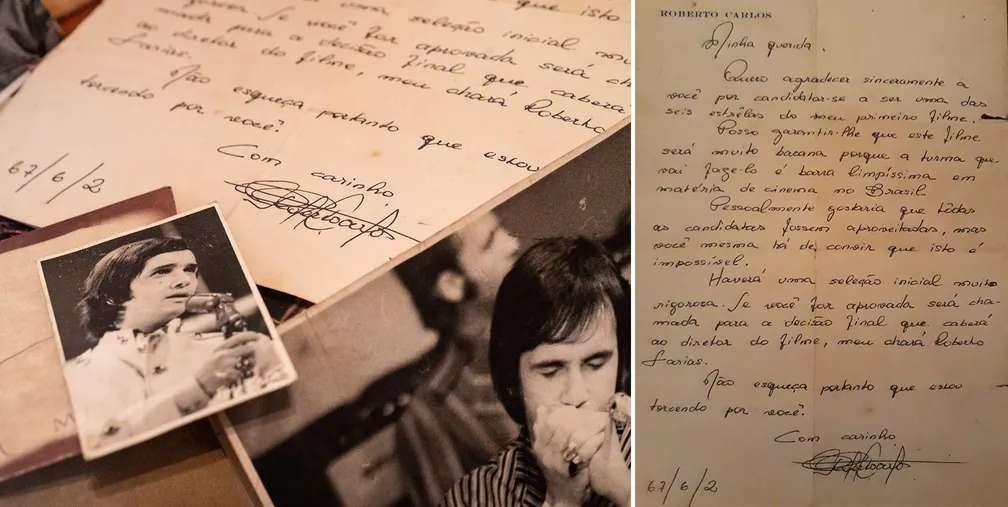 uma seleção inicial mu
que isto
rigorosa. Se você for aprovada será ch
mada para a decisão final que caberá
ao diretor do filme, meu chará Roberto
Farias.
Não esqueça portanto que estou
torcendo por você.
Com
carinho,
67/6/2
ROBERTO CARLOS
Minha querida,
Quero agradecer sinceramente a
você por candidatar-se a ser uma das
seis estrêlas do meu primeiro filme.
Posso garantir-lhe que este filme
será muito bacana porque a turma que
vai faze-lo é barra limpíssima em
matéria de cinema no Brasil
Pessoalmente gostaria que tôdas
as candidatas fossem aproveitadas, mas
você mesma há de convir que isto é
impossível.
Haverá uma seleção inicial muito
rigorosa. Se você for aprovada será cha-
mada para a decisão final que caberá
ao diretor do filme, meu chará Roberto
Farias.
Não esqueça portanto que estou
torcendo por você.
Com carinho
67/6/2